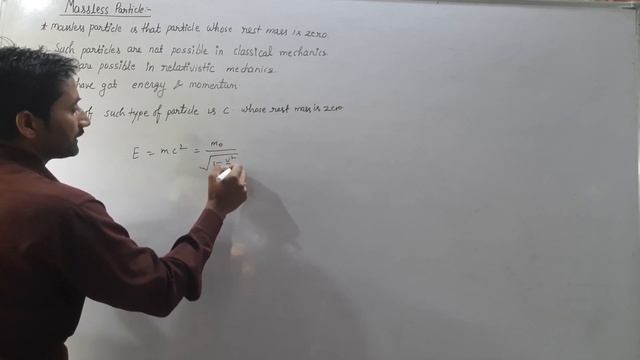 Massless Particle:-
* Massless particle is that particle whose rest mass is zero.
* Such particles are not possible in classical mechanics
are possible in relativistic mechanics
have got energy & momentum
of such type of particle is c whose rest mass is zero
E = mc² = m₀ / √(1 - v²